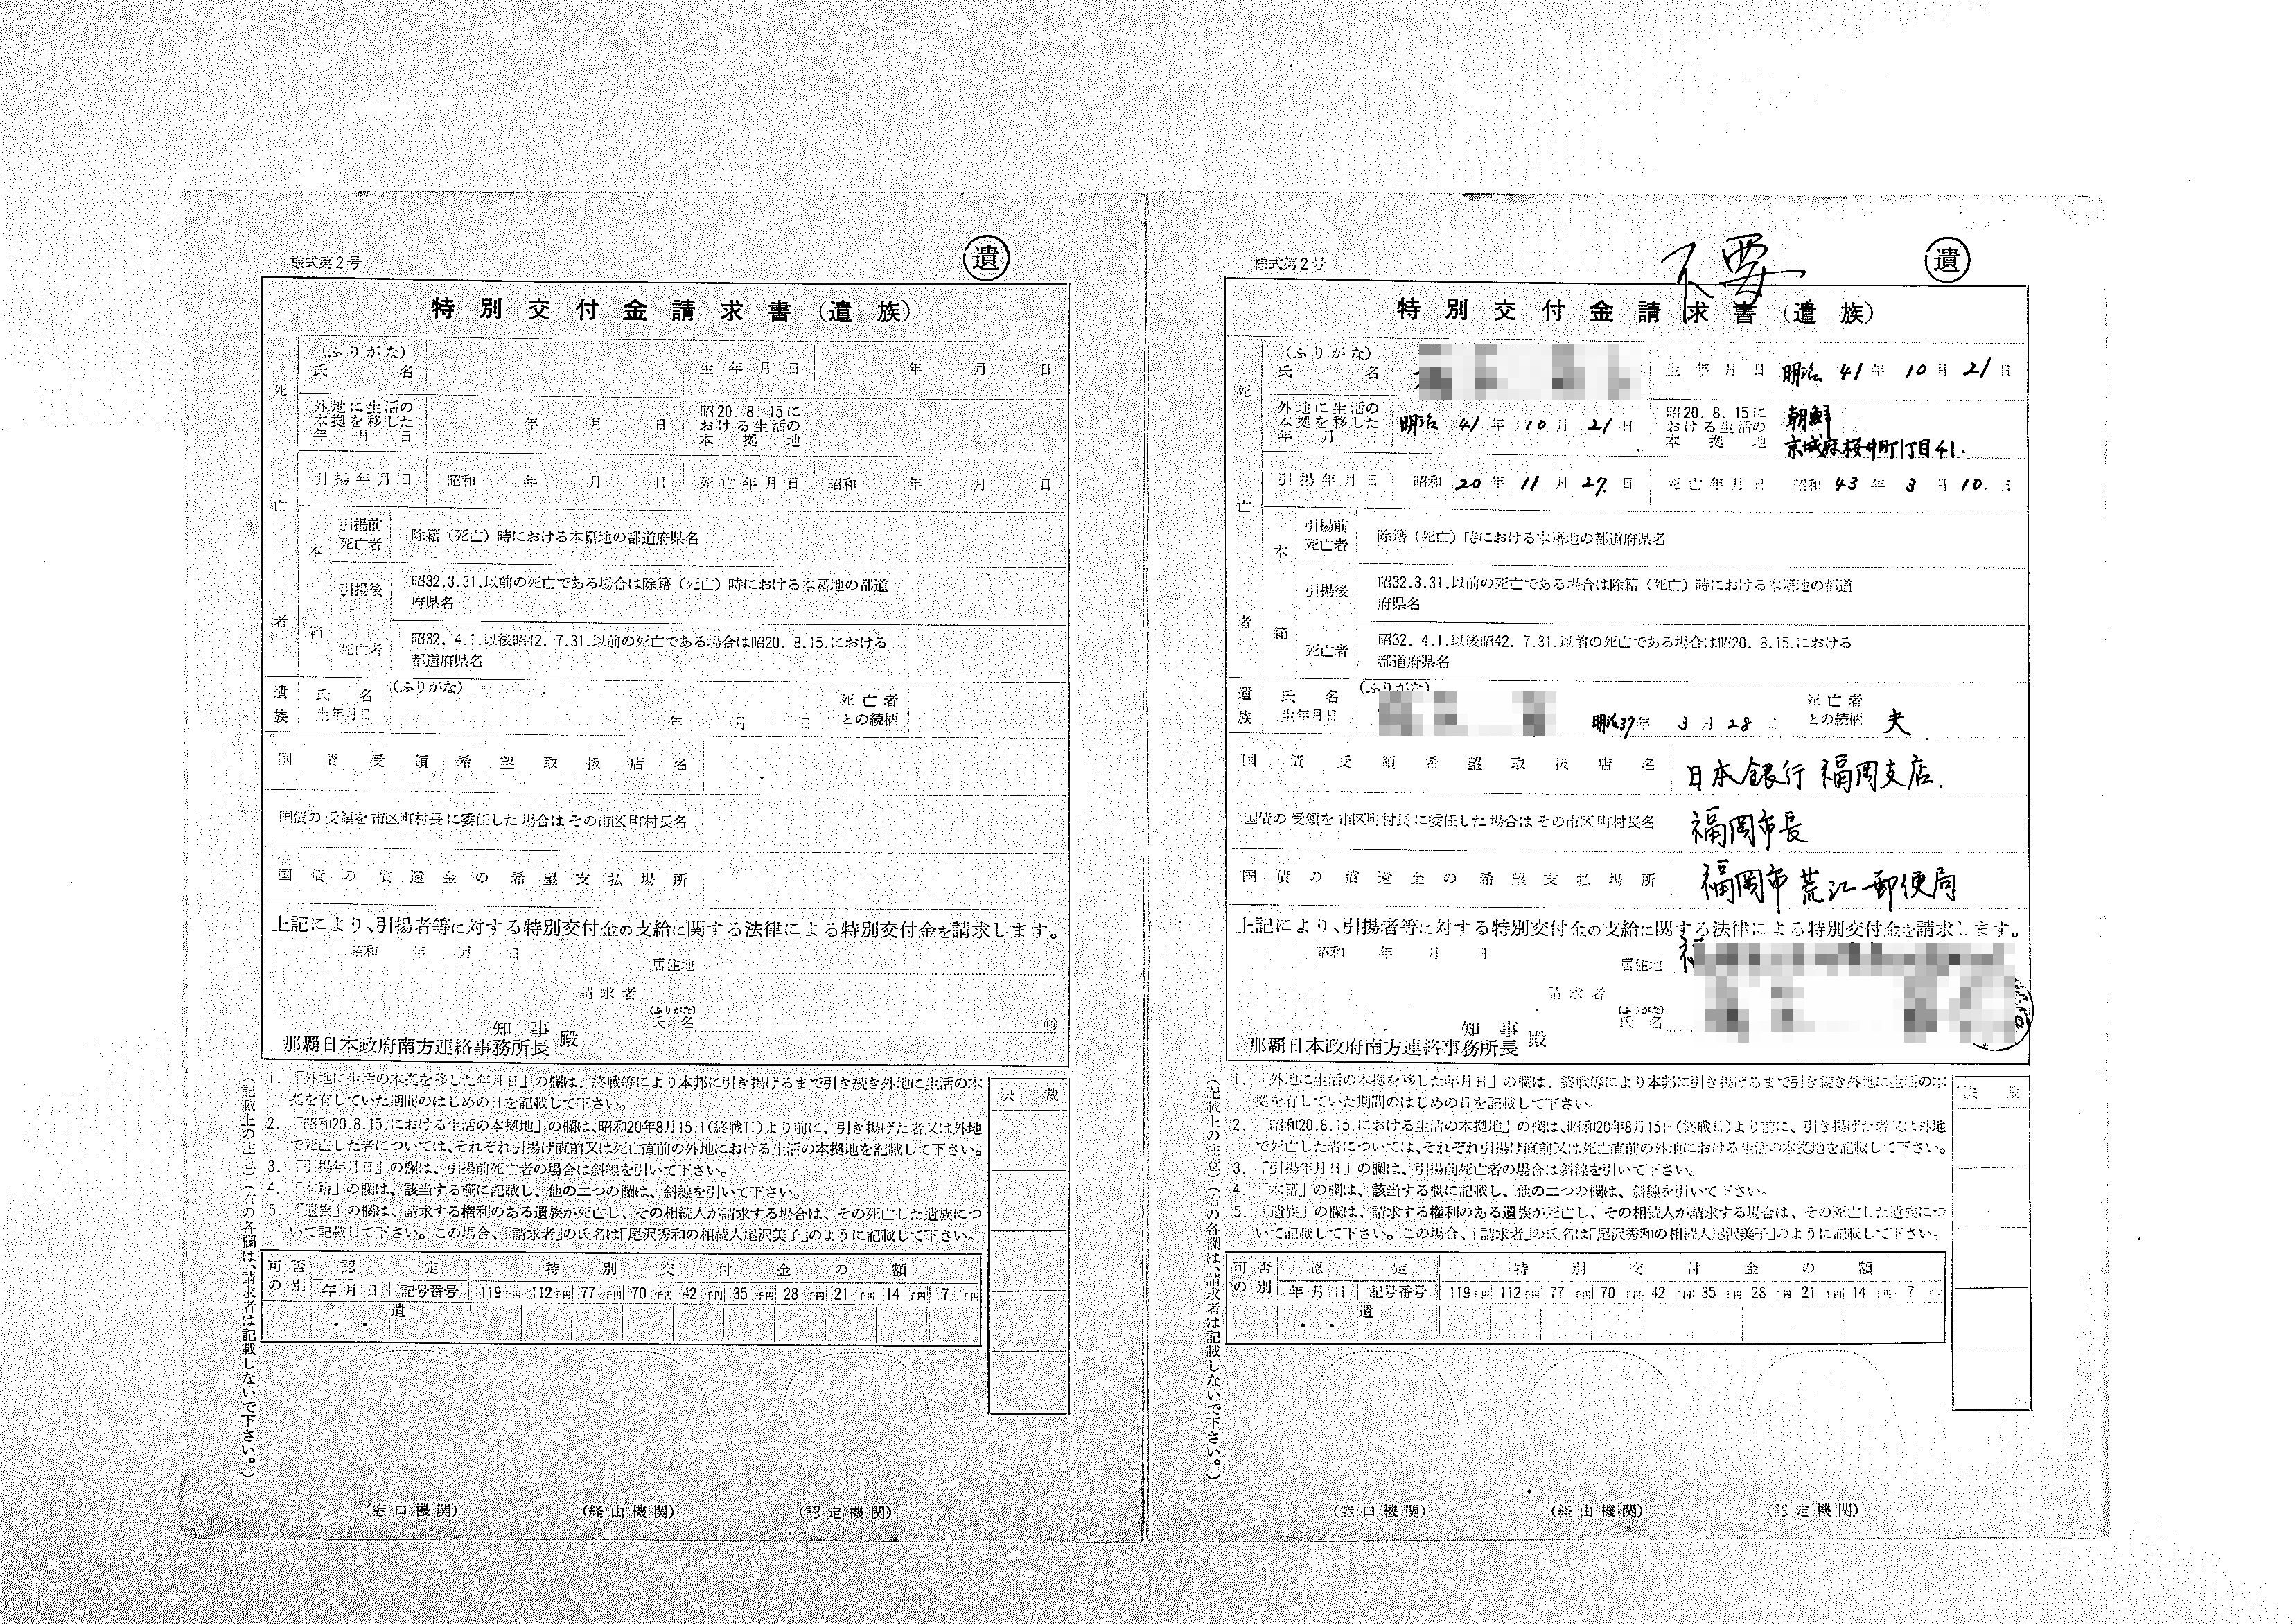 様式第2号
遺
特別交付金請求書(遺族)
死亡者
(ふりがな)
氏名
生年月日
年 月 日
外地に生活の本拠を移した年月日
年 月 日
昭20.8.15における生活の本拠地
引揚年月日
昭和 年 月 日
死亡年月日
昭和 年 月 日
本籍
引揚前死亡者
除籍(死亡)時における本籍地の都道府県名
引揚後死亡者
昭32.3.31.以前の死亡である場合は除籍(死亡)時における本籍地の都道
府県名
昭32.4.1.以後昭42.7.31.以前の死亡である場合は昭20.8.15.における
都道府県名
遺族
氏名
生年月日
(ふりがな)
年 月 日
死亡者との続柄
国債受領希望取扱店名
国債の受領を市区町村長に委任した場合はその市区町村長名
国債の償還金の希望支払場所
上記により、引揚者等に対する特別交付金の支給に関する法律による特別交付金を請求します。
昭和 年 月 日
居住地
請求者
(ふりがな)
氏名
㊞
知事
那覇日本政府南方連絡事務所長 殿
(記載上の注意)
1. 「外地に生活の本拠を移した年月日」の欄は、終戦等により本邦に引き揚げるまで引き続き外地に生活の本
拠を有していた期間のはじめの日を記載して下さい。
2. 「昭和20.8.15.における生活の本拠地」の欄は、昭和20年8月15日(終戦日)より前に、引き揚げた者又は外地
で死亡した者については、それぞれ引揚げ直前又は死亡直前の外地における生活の本拠地を記載して下さい。
3. 「引揚年月日」の欄は、引揚前死亡者の場合は斜線を引いて下さい。
4. 「本籍」の欄は、該当する欄に記載し、他の二つの欄は、斜線を引いて下さい。
5. 「遺族」の欄は、請求する権利のある遺族が死亡し、その相続人が請求する場合は、その死亡した遺族につ
いて記載して下さい。この場合、「請求者」の氏名は「尾沢秀和の相続人尾沢美子」のように記載して下さい。
決裁
(右の各欄は、請求者は記載しないで下さい。)
可否の別
認定
特別交付金の額
年月日 記号番号 119千円 112千円 77千円 70千円 42千円 35千円 28千円 21千円 14千円 7千円
・ ・ 遺
(窓口機関) (経由機関) (認定機関)
不要
様式第2号
遺
特別交付金請求書(遺族)
死亡者
(ふりがな)
氏名
生年月日
明治 41年 10月 21日
外地に生活の本拠を移した年月日
明治 41年 10月 21日
昭20.8.15における生活の本拠地
朝鮮
京城府桜井町1丁目41.
引揚年月日
昭和 20年 11月 27日
死亡年月日
昭和 43年 3月 10日
本籍
引揚前死亡者
除籍(死亡)時における本籍地の都道府県名
引揚後死亡者
昭32.3.31.以前の死亡である場合は除籍(死亡)時における本籍地の都道
府県名
昭32.4.1.以後昭42.7.31.以前の死亡である場合は昭20.8.15.における
都道府県名
遺族
氏名
生年月日
(ふりがな)
明治37年 3月 28日
死亡者との続柄
夫
国債受領希望取扱店名
日本銀行 福岡支店.
国債の受領を市区町村長に委任した場合はその市区町村長名
福岡市長
国債の償還金の希望支払場所
福岡市荒江郵便局
上記により、引揚者等に対する特別交付金の支給に関する法律による特別交付金を請求します。
昭和 年 月 日
居住地
請求者
(ふりがな)
氏名
知事
那覇日本政府南方連絡事務所長 殿
(記載上の注意)
1. 「外地に生活の本拠を移した年月日」の欄は、終戦等により本邦に引き揚げるまで引き続き外地に生活の本
拠を有していた期間のはじめの日を記載して下さい。
2. 「昭和20.8.15.における生活の本拠地」の欄は、昭和20年8月15日(終戦日)より前に、引き揚げた者又は外地
で死亡した者については、それぞれ引揚げ直前又は死亡直前の外地における生活の本拠地を記載して下さい。
3. 「引揚年月日」の欄は、引揚前死亡者の場合は斜線を引いて下さい。
4. 「本籍」の欄は、該当する欄に記載し、他の二つの欄は、斜線を引いて下さい。
5. 「遺族」の欄は、請求する権利のある遺族が死亡し、その相続人が請求する場合は、その死亡した遺族につ
いて記載して下さい。この場合、「請求者」の氏名は「尾沢秀和の相続人尾沢美子」のように記載して下さい。
決裁
(右の各欄は、請求者は記載しないで下さい。)
可否の別
認定
特別交付金の額
年月日 記号番号 119千円 112千円 77千円 70千円 42千円 35千円 28千円 21千円 14千円 7
・ ・ 遺
(窓口機関) (経由機関) (認定機関)